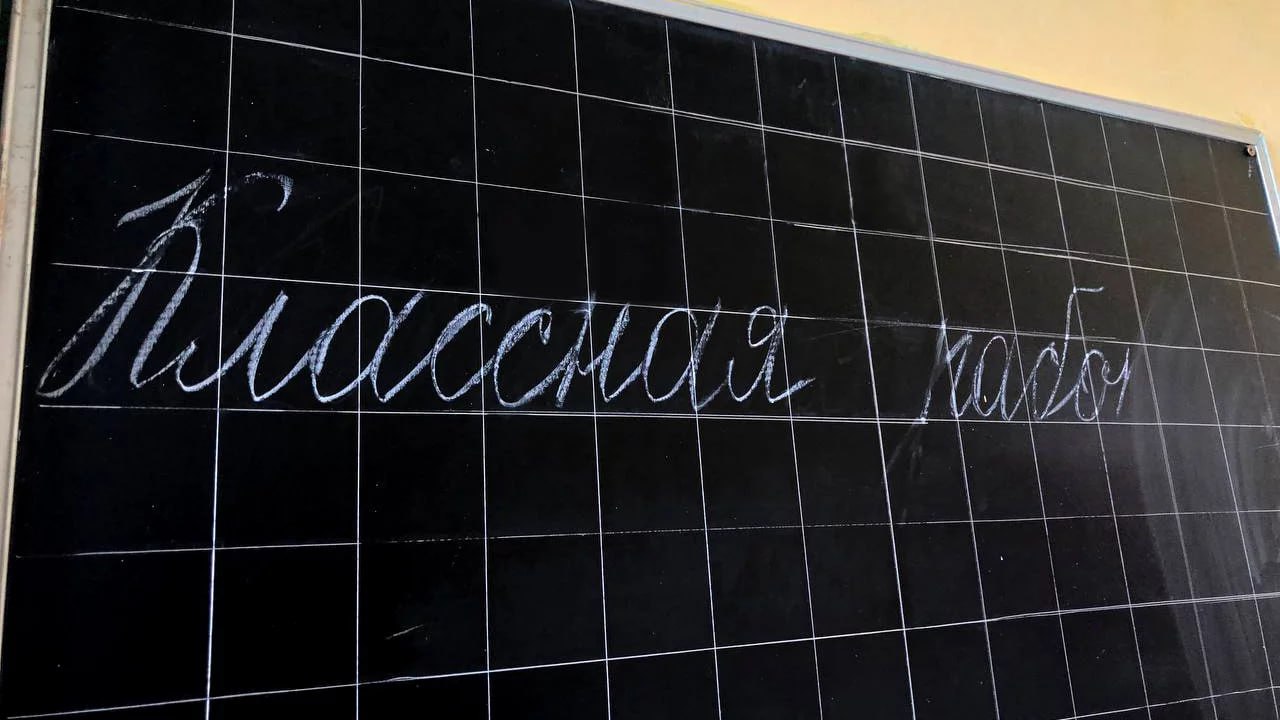 Классная рабо